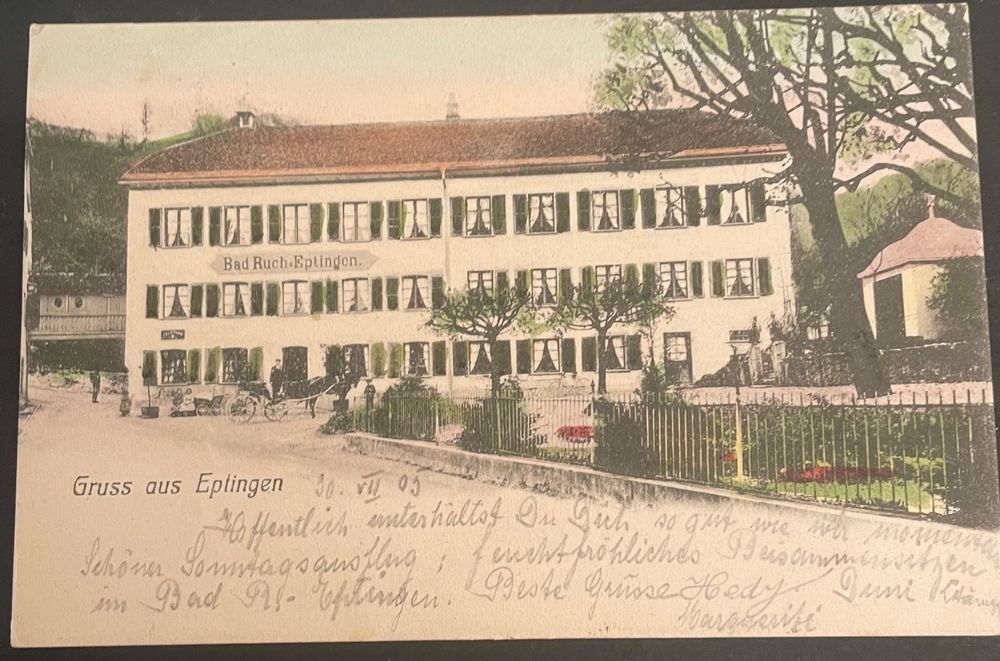 Bad Ruch-Eptingen.
Gruss aus Eptingen 30. VII 05
Hoffentlich unterhältst Du Dich, so gut wie wir momentan
Schöner Sonntagsausflug; feuchtfröhliches Beisammensitzen
im Bad R!- Eptingen. Beste Grüsse Hedy.
Marguerite